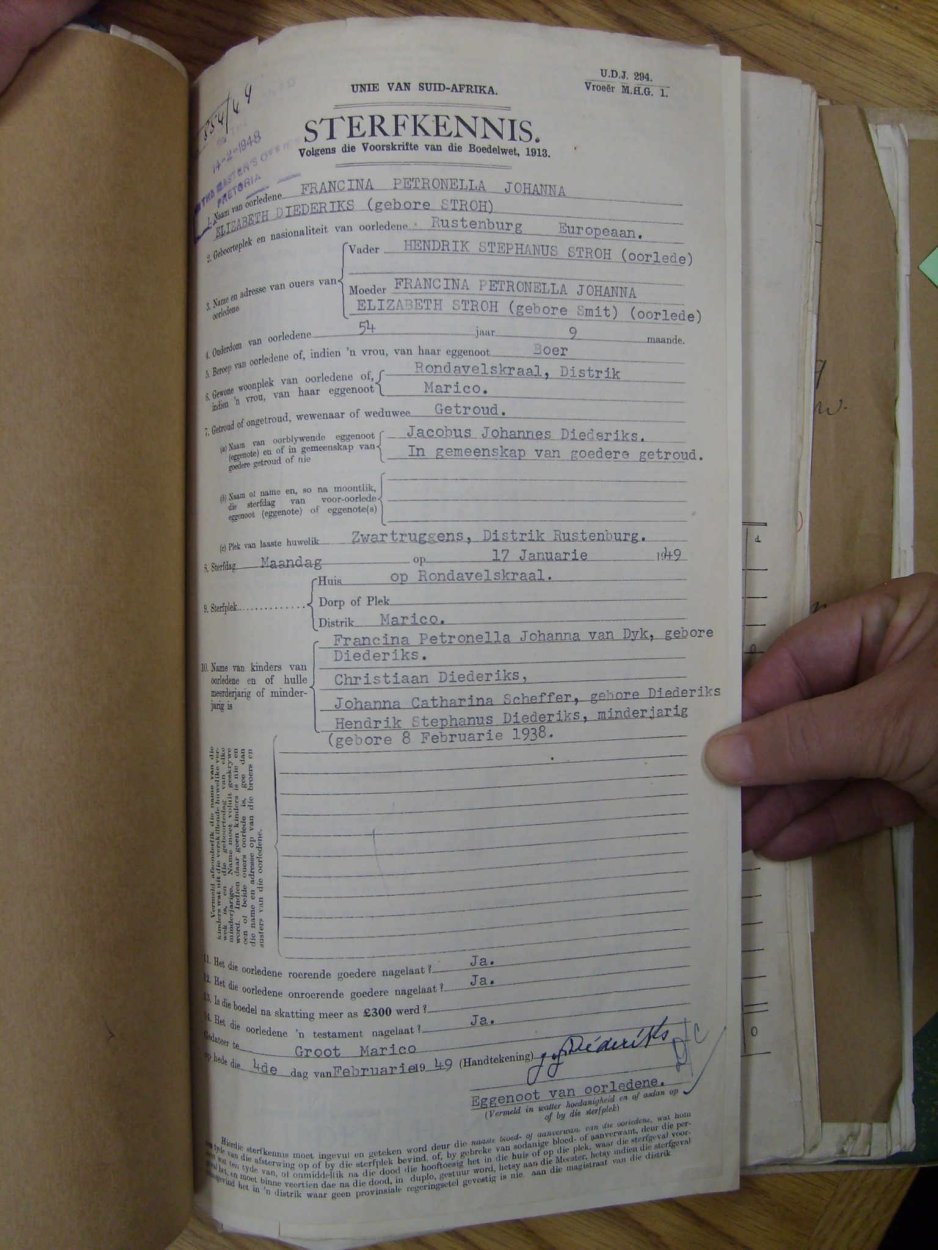 U.D.J. 294.
Vroeër M.H.G. 1.
UNIE VAN SUID-AFRIKA.
STERFKENNIS.
Volgens die Voorskrifte van die Boedelwet, 1913.
854/49
14-2-1948
MASTER'S OFFICE
PRETORIA
1. Naam van oorledene FRANCINA PETRONELLA JOHANNA
ELIZABETH DIEDERIKS (gebore STROH)
2. Geboorteplek en nasionaliteit van oorledene Rustenburg Europeaan.
3. Name en adresse van ouers van oorledene
Vader HENDRIK STEPHANUS STROH (oorlede)
Moeder FRANCINA PETRONELLA JOHANNA
ELIZABETH STROH (gebore Smit) (oorlede)
4. Ouderdom van oorledene 54 jaar 9 maande.
5. Beroep van oorledene of, indien 'n vrou, van haar eggenoot Boer
6. Gewone woonplek van oorledene of, Rondavelskraal, Distrik
indien 'n vrou, van haar eggenoot Marico.
7. Getroud of ongetroud, wewenaar of weduwee Getroud.
(a) Naam van oorblywende eggenoot Jacobus Johannes Diederiks.
(eggenote) en of in gemeenskap van In gemeenskap van goedere getroud.
goedere getroud of nie
(b) Naam of name en, so na moontlik,
die sterfdag van voor-oorlede
eggenoot (eggenote) of eggenote(s)
(c) Plek van laaste huwelik Zwartruggens, Distrik Rustenburg.
8. Sterfdag Maandag op 17 Januarie 1949
9. Sterfplek
Huis op Rondavelskraal.
Dorp of Plek
Distrik Marico.
10. Name van kinders van
oorledene en of hulle
meerderjarig of minder-
jarig is
Francina Petronella Johanna van Dyk, gebore
Diederiks.
Christiaan Diederiks,
Johanna Catharina Scheffer, gebore Diederiks
Hendrik Stephanus Diederiks, minderjarig
(gebore 8 Februarie 1938.
Vermeld afsonderlik die name van die
kinders wat uit die verskillende huwelike ver-
wek is, en die geboortedag van elke
minderjarige. Name moet voluit geskrywe
word. Indien daar geen kinders is nie en
een of beide ouers oorlede is, gee dan
die name en adresse op van die broers en
susters van die oorledene.
11. Het die oorledene roerende goedere nagelaat? Ja.
12. Het die oorledene onroerende goedere nagelaat? Ja.
13. Is die boedel na skatting meer as £300 werd?
14. Het die oorledene 'n testament nagelaat? Ja.
Gedateer te Groot Marico
op hede die 4de dag van Februarie 1949 (Handtekening) JJ Diederiks
Eggenoot van oorledene.
(Vermeld in watter hoedanigheid en of asdan op
of by die sterfplek)
Hierdie sterfkennis moet ingevul en geteken word deur die naaste bloed- of aanverwant van die oorledene, wat
tyde van die afsterwing op of by die sterfplek bevind, of, by gebreke van sodanige bloed- of aanverwant, deur die per-